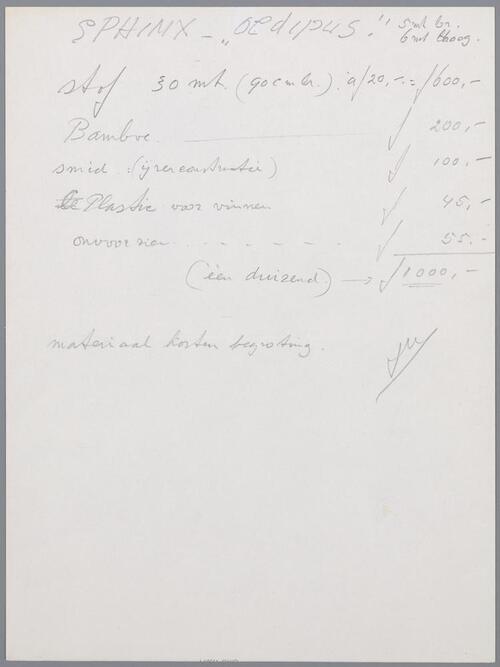 SPHINX - „OEdipus." 5 mt br.
6 mt hoog.
stof 30 mt. (90 cm br.) à ƒ20,-. = ƒ600,-
Bamboe. ƒ 200,-
smid :(ijzerconstructie) ƒ 100,-
Plastic voor vinnen ƒ 45,-
onvoorzien - - - - - - ƒ 55.-
(één duizend.) → ƒ1000,-
materiaal kosten begroting.